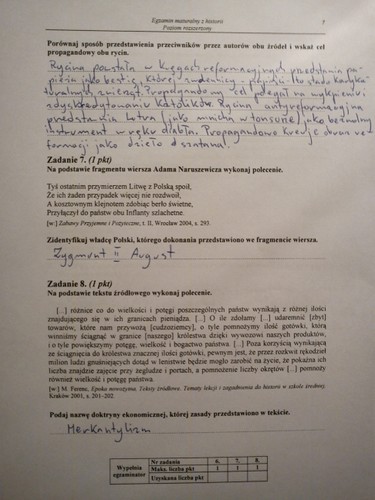 Egzamin maturalny z historii
Poziom rozszerzony
7
Porównaj sposób przedstawienia przeciwników przez autorów obu źródeł i wskaż cel
propagandowy obu rycin.
Rycina powstała w kręgach reformacyjnych przedstawia pa-
pieża jako bestię, której sudennicy - papiści - to stado karyka-
turalnych zwierząt. Propagandowy cel polegał na wykpieniu i
zdyskredytowaniu katolików. Rycina antyreformacyjna
przedstawia Lutra (jako mnicha w tonsurze) jako bezwolny
instrument w ręku diabła. Propagandowo kreuje obraz re-
formacji jako dzieło szatana.
Zadanie 7. (1 pkt)
Na podstawie fragmentu wiersza Adama Naruszewicza wykonaj polecenie.
Tyś ostatnim przymierzem Litwę z Polską spoił,
Że ich żaden przypadek więcej nie rozdwoił,
A kosztownym klejnotem zdobiąc berło świetne,
Przyłączył do państw obu Inflanty szlachetne.
[w:] Zabawy Przyjemne i Pożyteczne, t. II, Wrocław 2004, s. 295.
Zidentyfikuj władcę Polski, którego dokonania przedstawiono we fragmencie wiersza.
Zygmunt II August
Zadanie 8. (1 pkt)
Na podstawie tekstu źródłowego wykonaj polecenie.
[...] różnice co do wielkości i potęgi poszczególnych państw wynikają z różnej ilości
znajdującego się w ich granicach pieniądza. [...] O ile zdołamy [...] udaremnić [zbyt]
towarów, które nam przywożą [cudzoziemcy], o tyle pomnożymy ilość gotówki, którą
winniśmy ściągnąć w granice [naszego] królestwa dzięki wywozowi naszych produktów,
i o tyle powiększymy potęgę, wielkość i bogactwo państwa. [...] Poza korzyścią wynikającą
ze ściągnięcia do królestwa znacznej ilości gotówki, pewnym jest, że przez rozkwit rękodzieł
milion ludzi gnuśniejących dotąd w lenistwie będzie mogło zarobić na życie, że pokaźna ich
liczba znajdzie zajęcie przy żegludze i portach, a pomnożenie liczby okrętów [...] pomnoży
również wielkość i potęgę państwa.
[w:] M. Ferenc, Epoka nowożytna. Teksty źródłowe. Tematy lekcji i zagadnienia do historii w szkole średniej,
Kraków 2001, s. 201-202.
Podaj nazwę doktryny ekonomicznej, której zasady przedstawiono w tekście.
Merkantylizm
Wypełnia
egzaminator
Nr zadania 6. 7. 8.
Maks. liczba pkt 1 1 1
Uzyskana liczba pkt